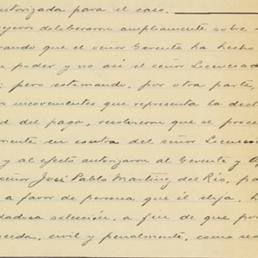 autorizada para el caso.
deliberaron ampliamente sobre
que el señor Gerente ha hecho
poder y no así el señor Licenciado
pero estimando, por otra parte,
inconvenientes que representa la
del pago, resolvieron que se
en contra del señor
y al efecto autorizaron al Gerente y
señor José Pablo Martínez del Río, pa
a favor de persona que él elija,
selección, a fin de que
civil y penalmente, como sea